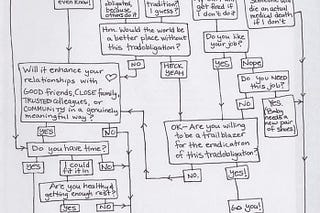 even know!
obligated,
because
others do it
tradition?
I guess?
get fired if
I don't do it
die an actual
medical death
if I don't
Hm. Would the world be
a better place without
this tradobligation?
NO
HECK
YEAH
Do you like
your job?
Yes
Nope
Do you NEED
this job?
NO
Yes.
Baby
needs a
new pair
of shoes!
Will it enhance your
relationships with
GOOD friends, CLOSE family,
TRUSTED colleagues, or
COMMUNITY in a genuinely
meaningful way?
YES
NO
Do you have time?
YES
I could
fit it in
NO
Are you healthy &
getting enough rest?
YES
NO
OK- Are you willing
to be a trailblazer
for the eradication
of this tradobligation?
NO.
YES!
Go you!